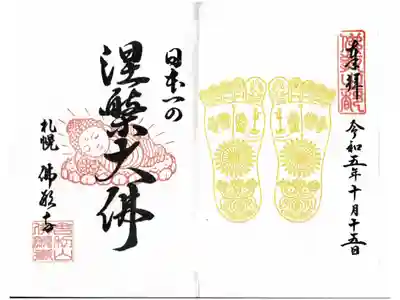 奉拝
令和五年十月十五日
日本一の
涅槃大佛
札幌 佛願寺